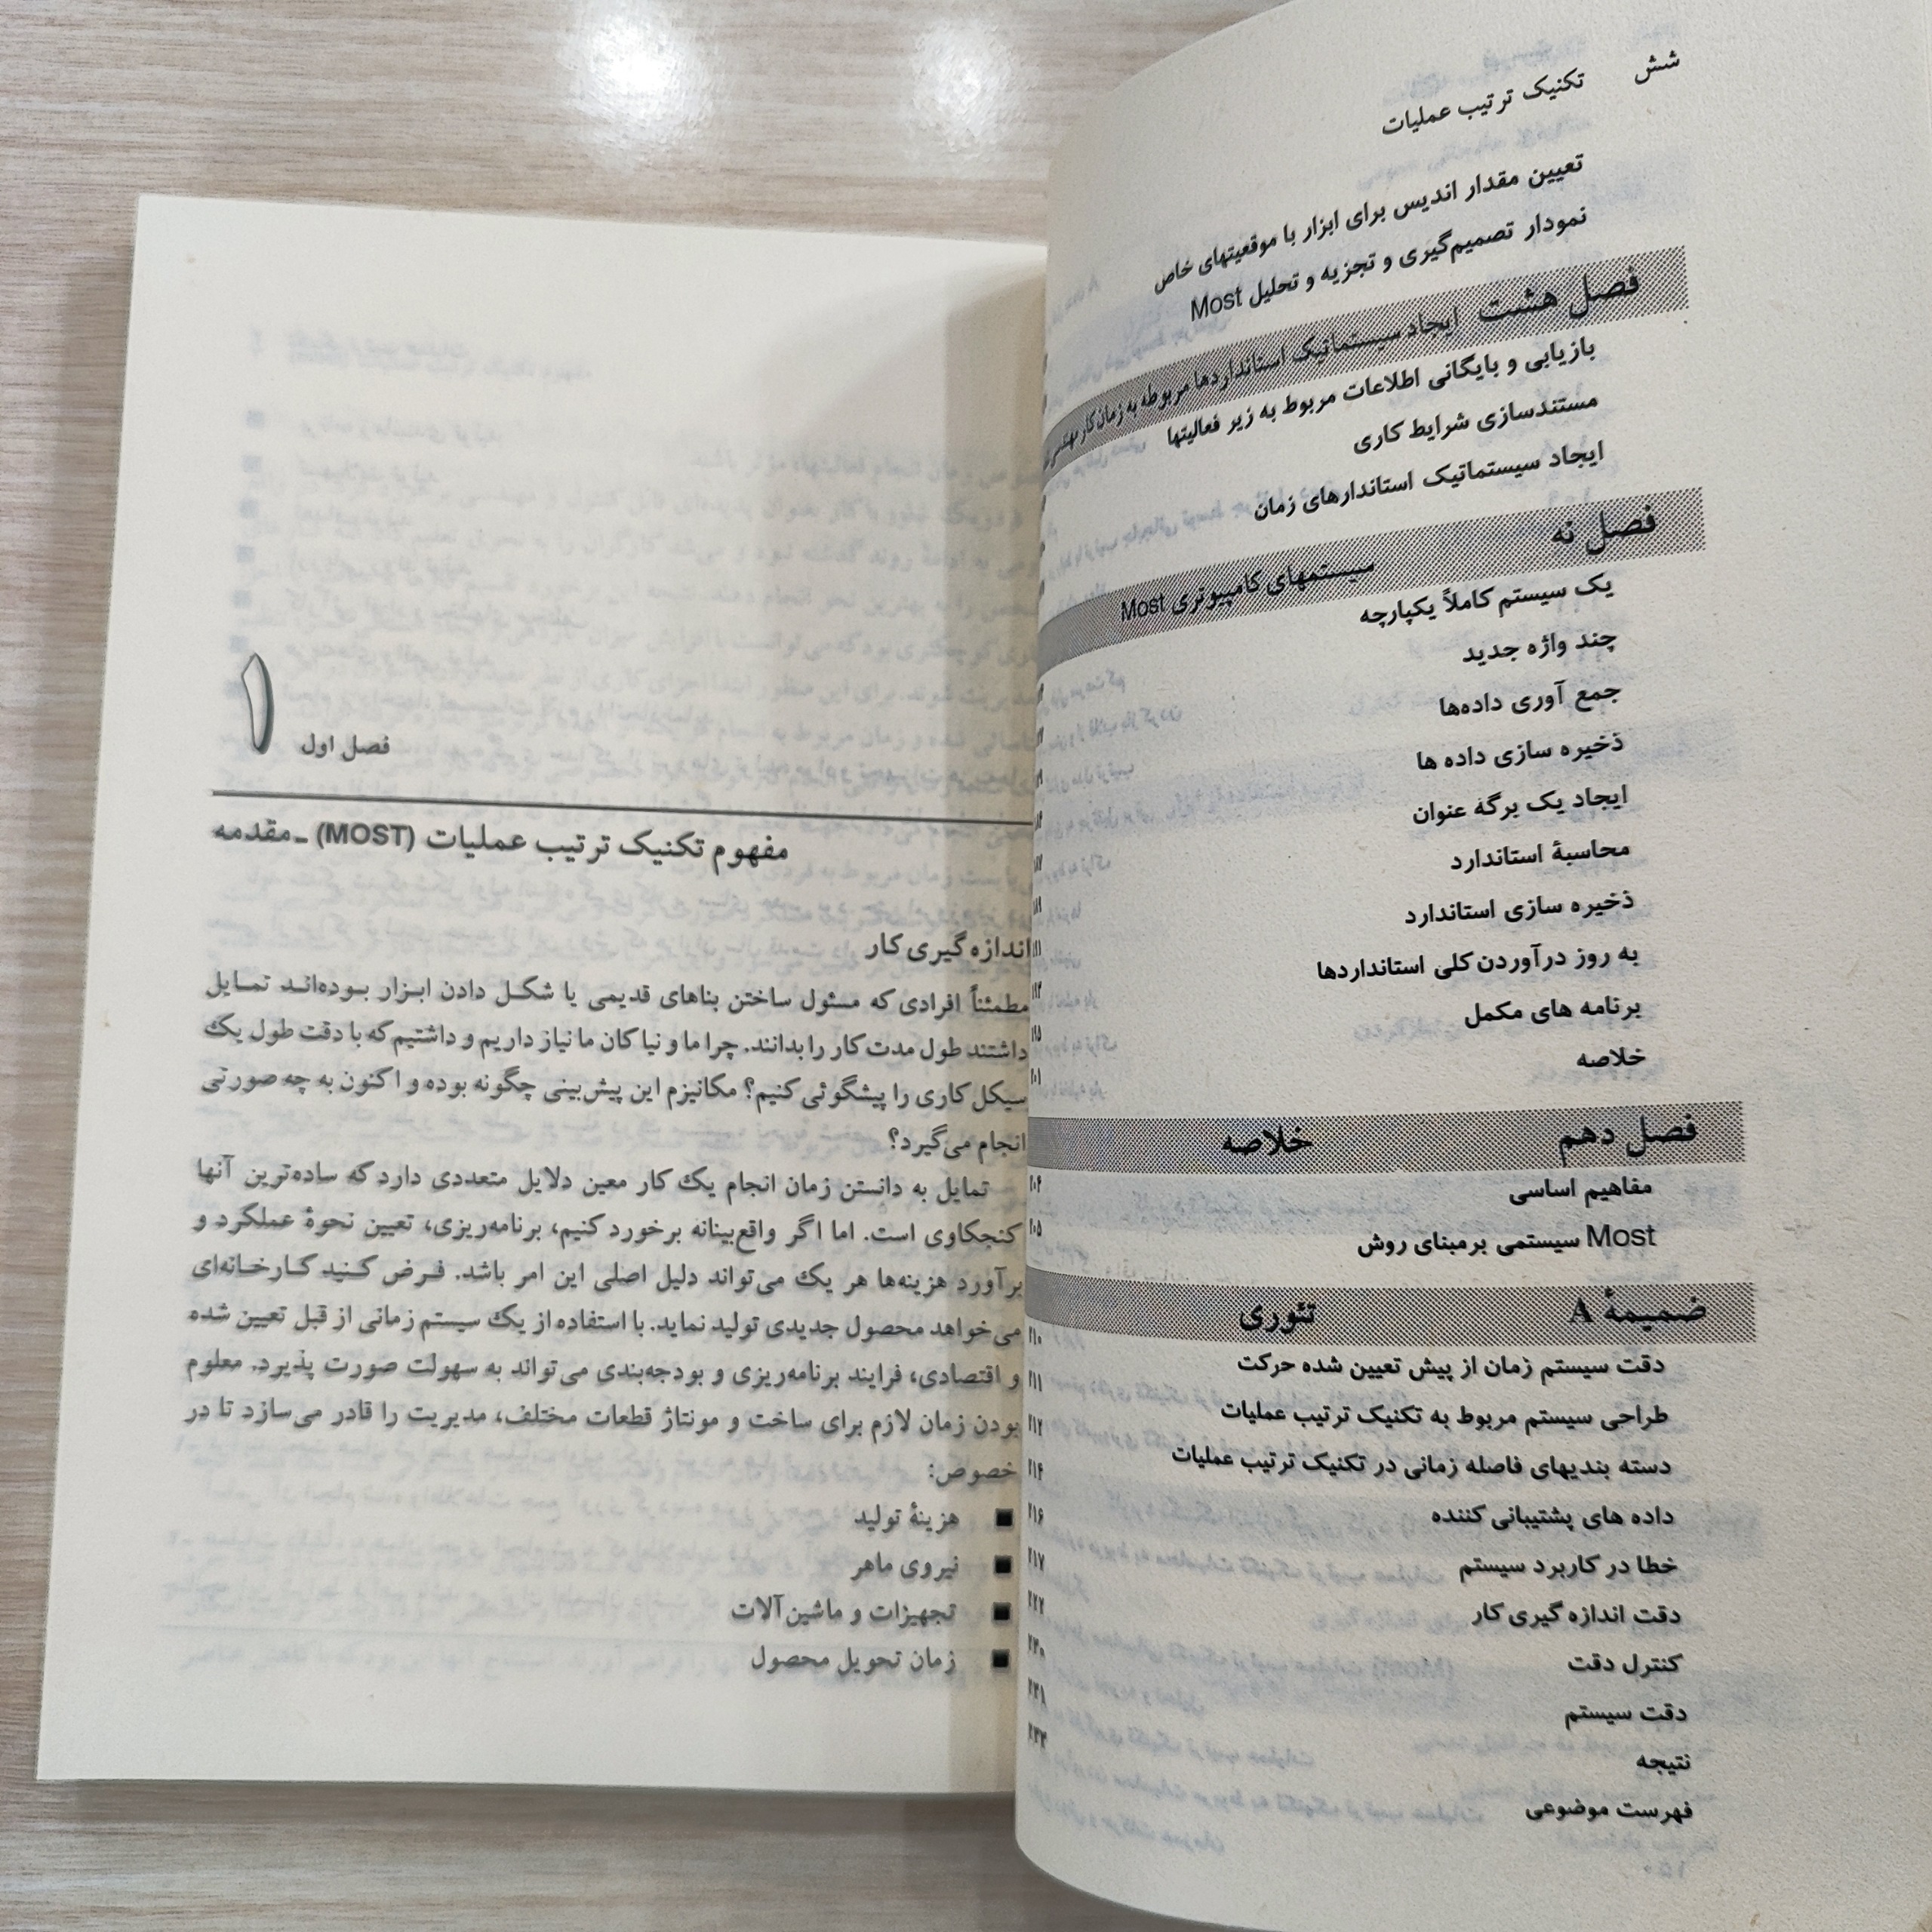 شش
تکنیک ترتیب عملیات
تعیین مقدار اندیس برای ابزار با موقعیتهای خاص
نمودار تصمیم‌گیری و تجزیه و تحلیل Most
فصل هشت ایجاد سیستماتیک استانداردها مربوطه به زمان کار مهندسی
بازیابی و بایگانی اطلاعات مربوط به زیر فعالیتها
مستندسازی شرایط کاری
ایجاد سیستماتیک استاندارهای زمان
فصل نه
سیستمهای کامپیوتری Most
یک سیستم کاملاً یکپارچه
چند واژه جدید
جمع آوری داده‌ها
ذخیره سازی داده ها
ایجاد یک برگه عنوان
محاسبهٔ استاندارد
ذخیره سازی استاندارد
به روز درآوردن کلی استانداردها
برنامه های مکمل
خلاصه
فصل دهم خلاصه
مفاهیم اساسی
Most سیستمی برمبنای روش
ضمیمهٔ A تئوری
دقت سیستم زمان از پیش تعیین شده حرکت
طراحی سیستم مربوط به تکنیک ترتیب عملیات
دسته بندیهای فاصله زمانی در تکنیک ترتیب عملیات
داده های پشتیبانی کننده
خطا در کاربرد سیستم
دقت اندازه گیری کار
کنترل دقت
دقت سیستم
نتیجه
فهرست موضوعی
۱
فصل اول
مفهوم تکنیک ترتیب عملیات (MOST) ـ مقدمه
اندازه گیری کار
مطمئناً افرادی که مسئول ساختن بناهای قدیمی یا شکل دادن ابزار بوده‌اند تمایل
داشتند طول مدت کار را بدانند. چرا ما و نیا کان ما نیاز داریم و داشتیم که با دقت طول یک
سیکل کاری را پیشگوئی کنیم؟ مکانیزم این پیش‌بینی چگونه بوده و اکنون به چه صورتی
انجام می‌گیرد؟
تمایل به دانستن زمان انجام یک کار معین دلایل متعددی دارد که ساده‌ترین آنها
کنجکاوی است. اما اگر واقع‌بینانه برخورد کنیم، برنامه‌ریزی، تعیین نحوهٔ عملکرد و
برآورد هزینه‌ها هر یک می‌تواند دلیل اصلی این امر باشد. فرض کنید کارخانه‌ای
می‌خواهد محصول جدیدی تولید نماید. با استفاده از یک سیستم زمانی از قبل تعیین شده
و اقتصادی، فرایند برنامه‌ریزی و بودجه‌بندی می‌تواند به سهولت صورت پذیرد. معلوم
بودن زمان لازم برای ساخت و مونتاژ قطعات مختلف، مدیریت را قادر می‌سازد تا در
خصوص:
■ هزینهٔ تولید
■ نیروی ماهر
■ تجهیزات و ماشین‌آلات
■ زمان تحویل محصول